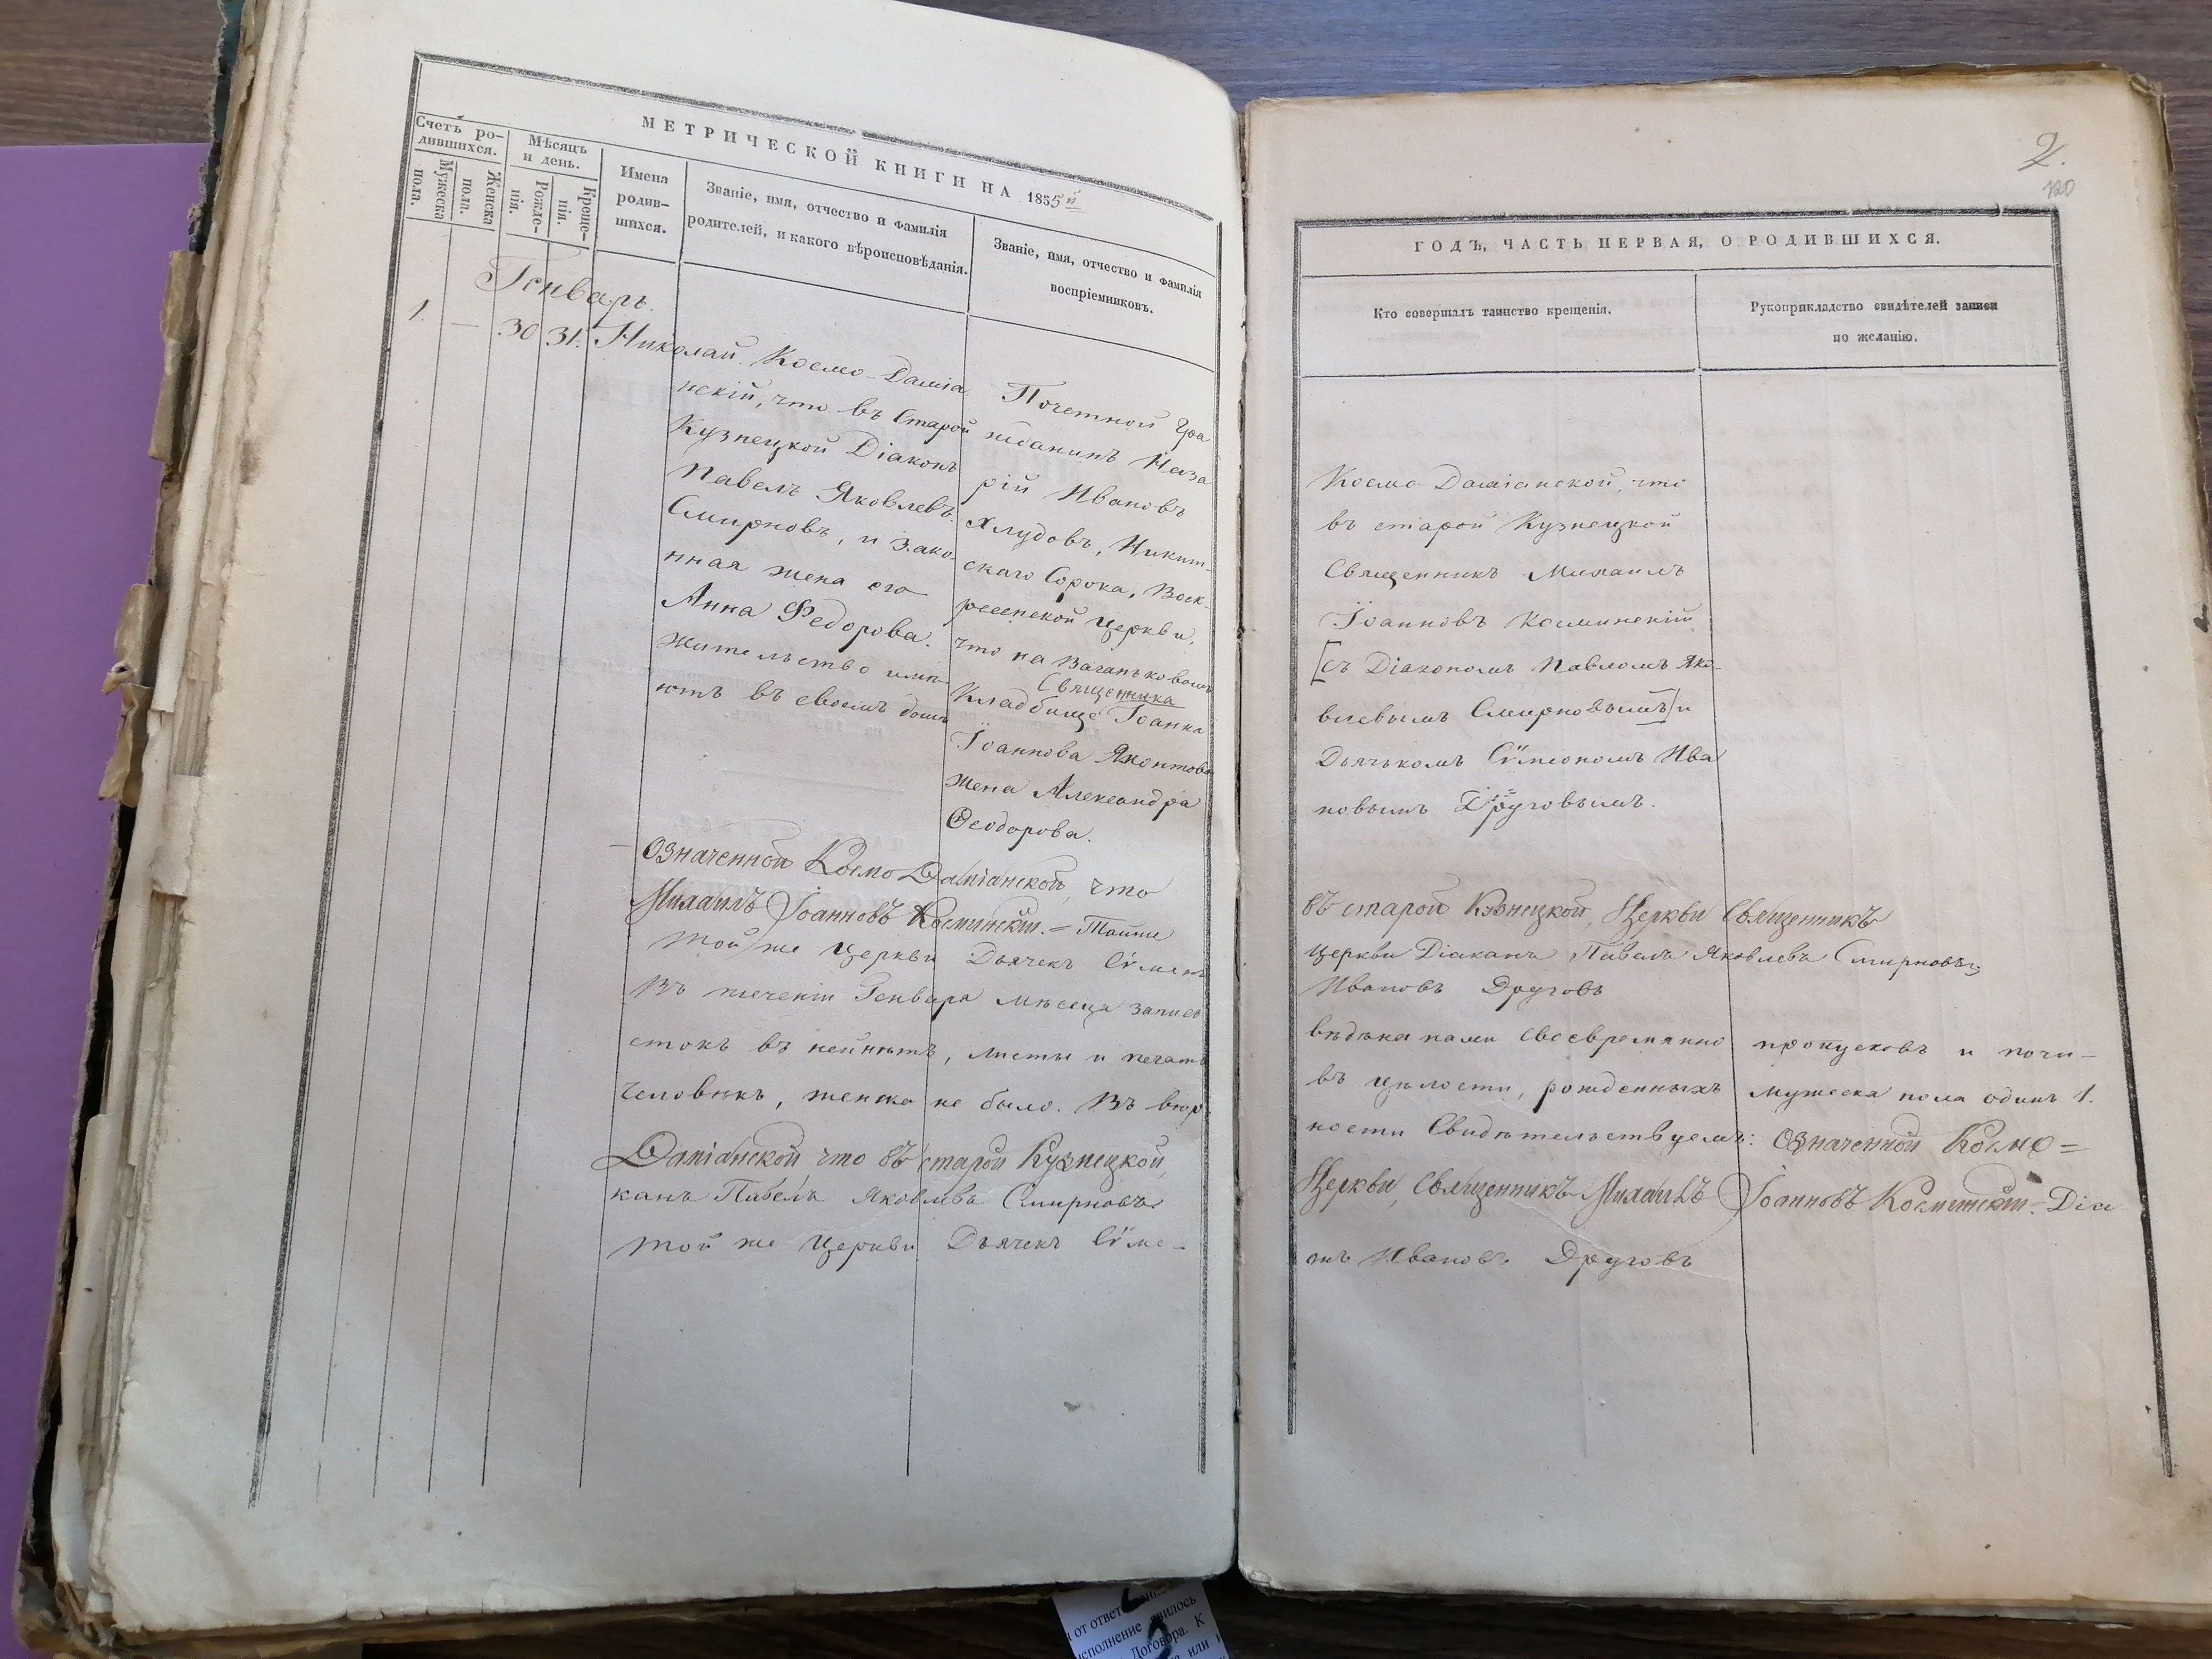 МЕТРИЧЕСКОЙ КНИГИ НА 1855й
Счетъ ро-
дившихся.
Мужеска
пола.
Женска
пола.
Мѣсяцъ
и день.
Рожде-
нія.
Креще-
нія.
Имена
родив-
шихся.
Званіе, имя, отчество и фамилія
родителей, и какого вѣроисповѣданія.
Званіе, имя, отчество и фамилія
воспріемниковъ.
Генварь.
1. — 30 31. Николай.
Космо-Даміа
нскій, что въ Старой
Кузнецкой Діаконъ
Павелъ Яковлевъ
Смирновъ, и зако-
нная жена его
Анна Федорова.
жительство имѣ-
ютъ въ своемъ домѣ
Почетной Гра
жданинъ Наза
рій Ивановъ
Хлудовъ, Никит-
скаго Сорока, Воск-
ресенской церкви,
что на Ваганьковомъ
Священника
Кладбище Іоанна
Іоаннова Яхонтова
жена Александра
Ѳеодорова.
Означенной Космо Даміанской, что
Михаилъ Іоанновъ Косминскій. —
Той же Церкви Дьячекъ Сѵмеонъ
Въ теченіи Генваря мѣсеца записы
стокъ въ ней нѣтъ, листы и печать
человѣкъ, женска не было. Въ вѣр
Даміанской что въ старой Кузнецкой,
канъ Павелъ Яковлевъ Смирновъ
той же Церкви Дьячекъ Сѵме-
2.
120
ГОДЪ, ЧАСТЬ ПЕРВАЯ, О РОДИВШИХСЯ.
Кто совершалъ таинство крещенія.
Рукоприкладство свидѣтелей записи
по желанію.
Космо-Даміанской, что
въ старой Кузнецкой
Священникъ Михаилъ
Іоанновъ Косминскій
[съ Діакономъ Павломъ Яко-
влевымъ Смирновымъ] и
Дьячькомъ Сѵмеономъ Ива
новымъ Друговымъ.
въ старой Кузнецкой, Церкви Священникъ
Церкви Діаканъ Павелъ Яковлевъ Смирновъ
Ивановъ Друговъ
своевремянно пропусковъ и почи-
въ цѣлости, рожденныхъ мужеска пола одинъ 1.
ности Свидѣтельствуемъ: Означенной Космо=
Церкви, Священникъ Михаилъ Іоанновъ Косминскій. Діа
нъ Ивановъ Друговъ